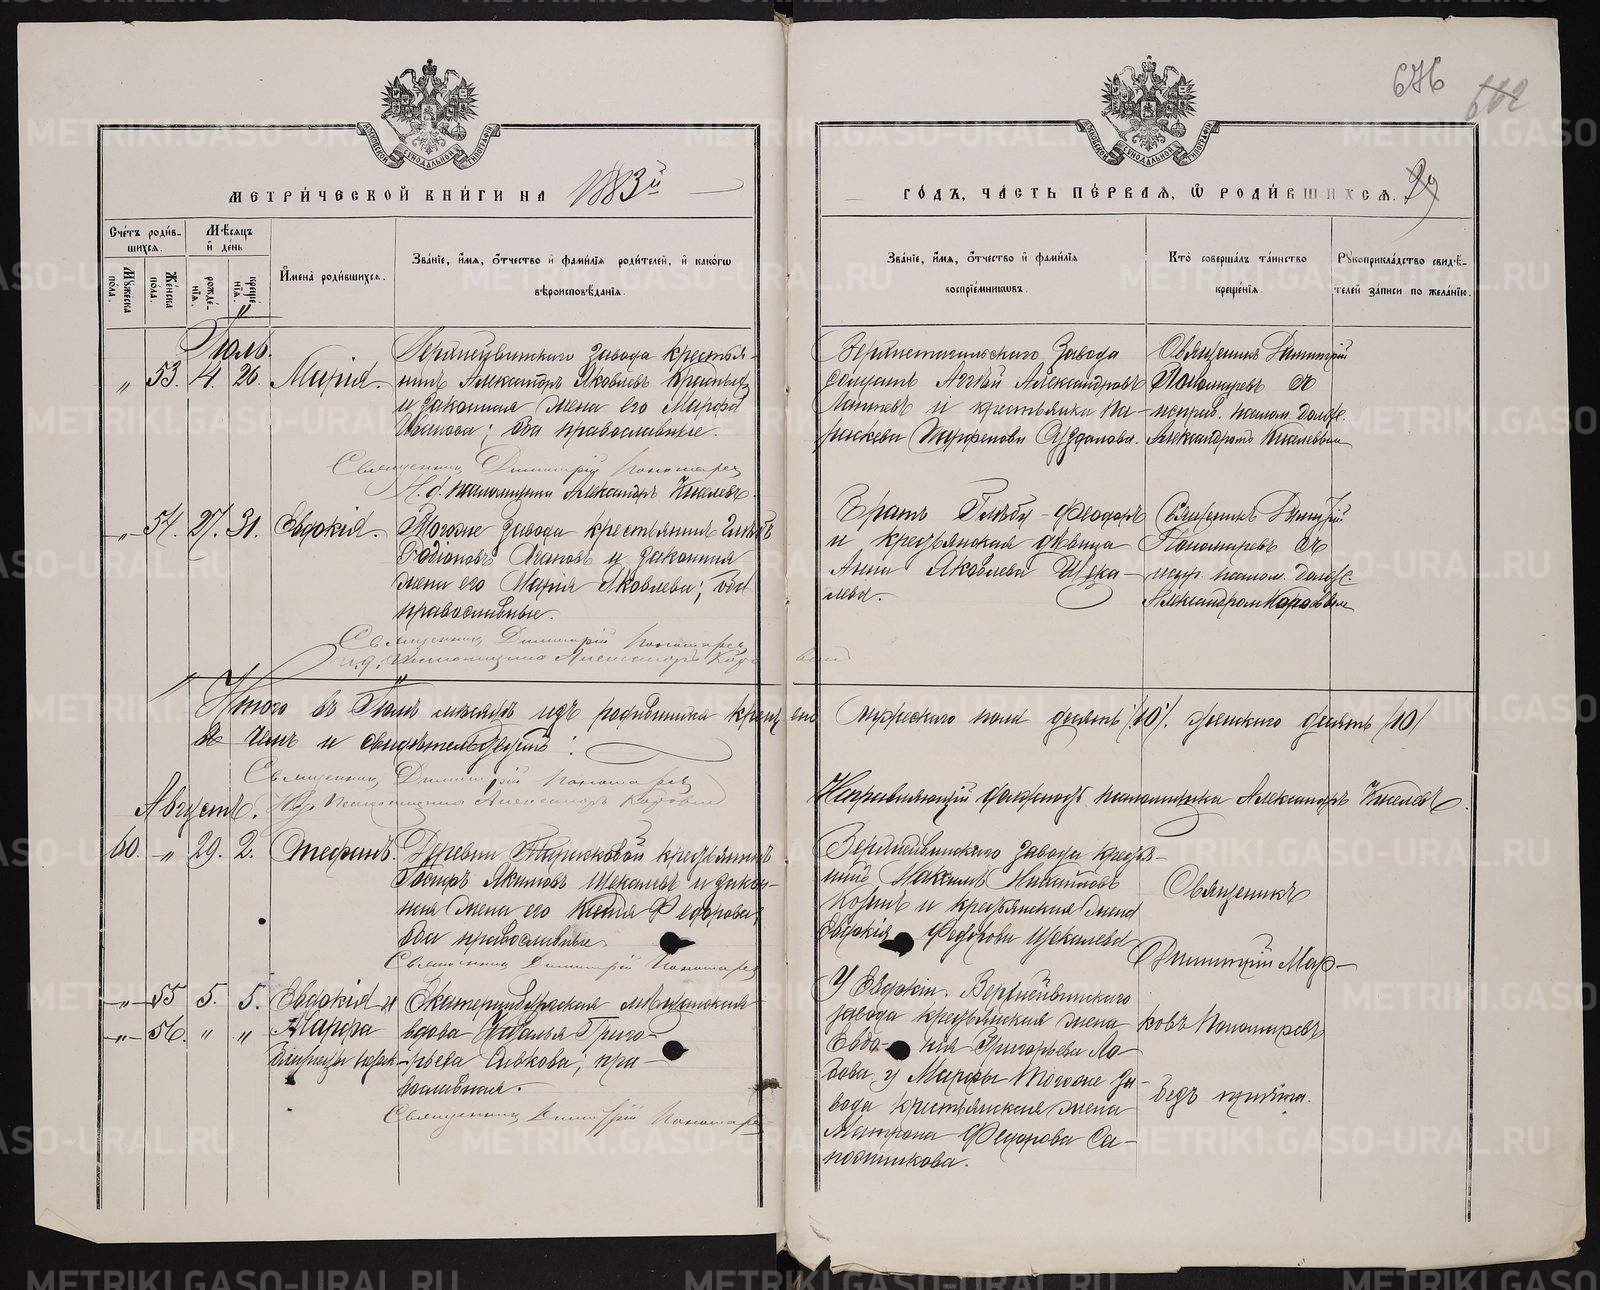 676
602
МОСКОВСКОЙ СѴНОДАЛЬНОЙ ТИПОГРАФІИ
МЕТРИ́ЧЕСКОЙ КНИ́ГИ НА 1883й
ГО́ДЪ, ЧА́СТЬ ПЕ́РВАЯ, Ѡ РОДИ́ВШИХСЯ. 29
Сче́тъ роди́вшихся.
Му́жеска по́ла.
Же́нска по́ла.
Мѣ́сяцъ и де́нь
рожде́нія.
креще́нія.
Имена̀ роди́вшихся.
Зва́ніе, и́мя, о́тчество и фами́лія роди́телей, и како́гѡ вѣроисповѣ́данія.
Зва́ніе, и́мя, о́тчество и фами́лія воспріе́мниковъ.
Кто̀ соверша́лъ та́инство креще́нія.
Рукоприкла́дство свидѣ́телей за́писи по жела́нію.
Іюль.
„ 53. 4. 26. Марія.
Верхнейвинскаго завода крестья-
нинъ Александръ Яковлевъ
и законная жена его Марфа
Иванова; оба православные.
Священникъ Димитрій Пономаревъ
И. д. псаломщика Александръ Киселевъ.
Верхнетагильскаго Завода
Александровъ
и крестьянка Па-
раскева Парфенова
Священникъ Димитрій
Пономаревъ съ
исправ. псалом. должн.
Александромъ Киселевымъ
„ 54. 27. 31. Евдокія.
Тогоже завода крестьянинъ Глѣбъ
Родіоновъ Агановъ и законная
жена его Марія Яковлева; оба
православные.
Священникъ Димитрій Пономаревъ
и. д. псаломщика Александръ
Братъ Глѣбу - Феодоръ
и крестьянская дѣвица
Анна Яковлева Щека-
лева.
Священникъ Димитрій
Пономаревъ съ
испр. псалом. должн.
Александромъ
Итого въ Іюлѣ мѣсяцѣ изъ родившихся крещено мужескаго пола десять /10/. женскаго десять /10/
въ чемъ и свидѣтельствуютъ:
Священникъ Димитрій Пономаревъ
псаломщика Александръ
Исправляющій должность псаломщика Александръ Киселевъ.
Августъ.
60. „ 29. 2. Стефанъ.
Деревни Тарасковой крестьянинъ
Якимовъ Щекалевъ и закон-
ная жена его Ксенія Федорова;
оба православные.
Священникъ Димитрій Пономаревъ
Верхнейвинскаго завода крестья-
нинъ Максимъ Михайловъ
и крестьянская жена
Евдокія Федорова Щекалева
Священникъ
Димитрій Мар-
ковъ Пономаревъ
безъ причта.
„ 55 5. 5. Евдокія и
„ 56. „ „ Марфа
близнецы
Екатеринбургская мѣщанская
вдова Наталья Григо-
рьева Сивкова; пра-
вославная.
Священникъ Димитрій Пономаревъ
У Евдокіи. Верхнейвинскаго
завода крестьянская жена
Евдо- кія Григорьева Ло-
бова, у Марфы тогоже за-
вода крестьянская жена
Матрона Федорова Са-
пожникова.
METRIKI.GASO-URAL.RU